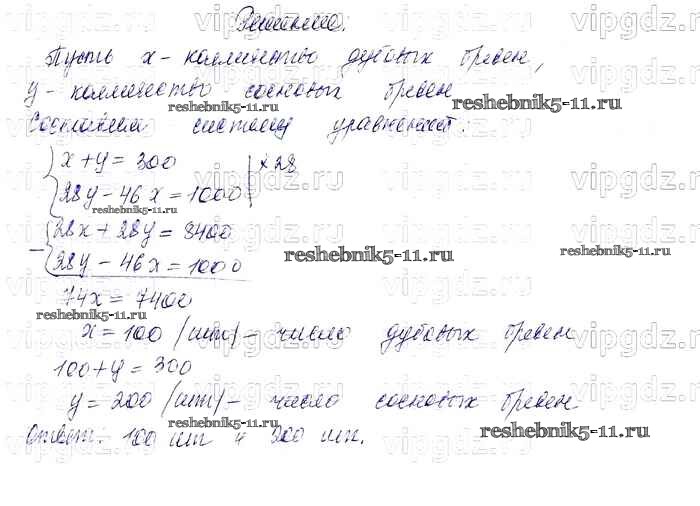 Решение.
Пусть x - колличество дубовых бревен,
y - колличество сосновых бревен
Составим систему уравнений:
x + y = 300 | × 28
28y - 46x = 1000
28x + 28y = 8400
28y - 46x = 1000
74x = 7400
x = 100 (шт) - число дубовых бревен
100 + y = 300
y = 200 (шт) - число сосновых бревен
Ответ: 100 шт и 200 шт.
vipgdz.ru
reshebnik5-11.ru